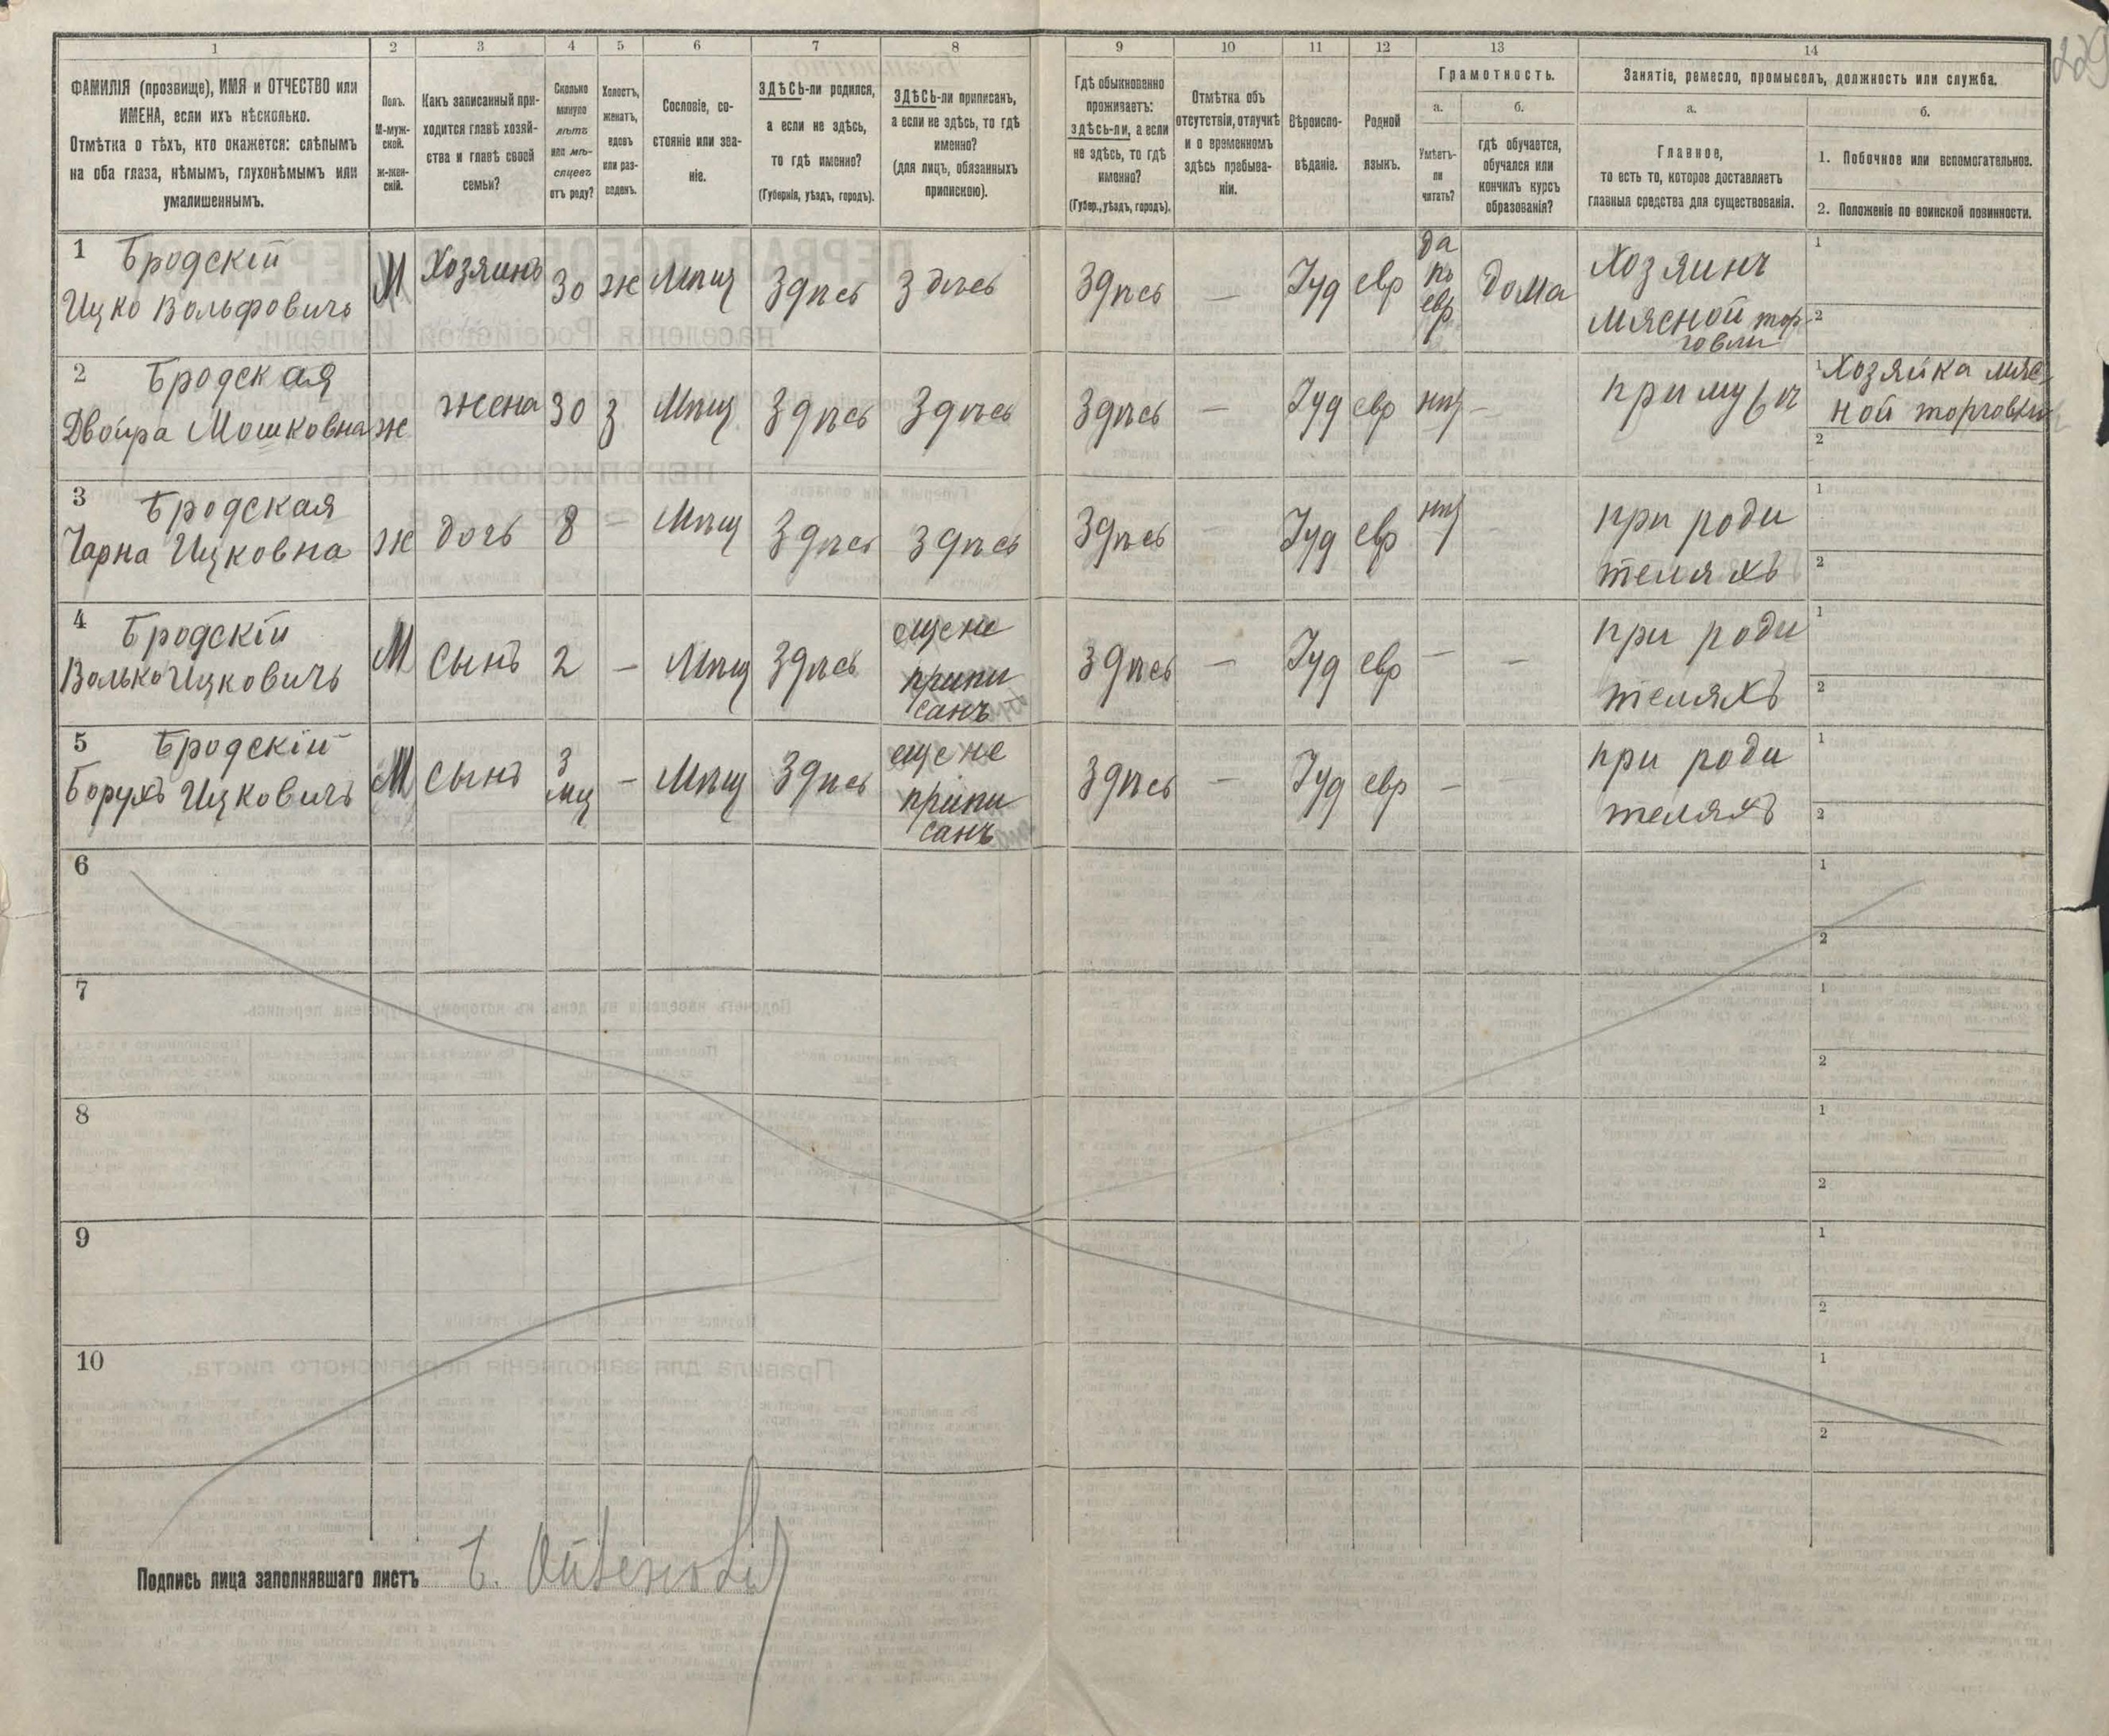 229
1 2 3 4 5 6 7 8 9 10 11 12 13 14
ФАМИЛІЯ (прозвище), ИМЯ и ОТЧЕСТВО или
ИМЕНА, если ихъ нѣсколько.
Отмѣтка о тѣхъ, кто окажется: слѣпымъ
на оба глаза, нѣмымъ, глухонѣмымъ или
умалишеннымъ.
Полъ.
М-муж-
ской.
Ж-жен-
скій.
Какъ записанный при-
ходится главѣ хозяй-
ства и главѣ своей
семьи?
Сколько
минуло
лѣтъ
или мѣ-
сяцевъ
отъ роду?
Холостъ,
женатъ,
вдовъ
или раз-
веденъ.
Сословіе, со-
стояніе или зва-
ніе.
ЗДѢСЬ-ли родился,
а если не здѣсь,
то гдѣ именно?
(Губернія, уѣздъ, городъ).
ЗДѢСЬ-ли приписанъ,
а если не здѣсь, то гдѣ
именно?
(для лицъ, обязанныхъ
припискою).
Гдѣ обыкновенно
проживаетъ:
здѣсь-ли, а если
не здѣсь, то гдѣ
именно?
(Губер., уѣздъ, городъ).
Отмѣтка объ
отсутствіи, отлучкѣ
и о временномъ
здѣсь пребыва-
ніи.
Вѣроиспо-
вѣданіе.
Родной
языкъ.
Грамотность.
а.
Умѣетъ-
ли
читать?
б.
гдѣ обучается,
обучался или
кончилъ курсъ
образованія?
Занятіе, ремесло, промыселъ, должность или служба.
а.
Главное,
то есть то, которое доставляетъ
главныя средства для существованія.
б.
1. Побочное или вспомогательное.
2. Положеніе по воинской повинности.
1 Бродскій
Ицко Вольфовичъ
М
Хозяинъ
30
ж
Мѣщ
Здѣсь
Здѣсь
Здѣсь
—
Іуд
евр
да
по
евр
дома
Хозяинъ
мясной тор
говли
1
2
2 Бродская
Двойра Мошковна
ж
жена
30
з
Мѣщ
Здѣсь
Здѣсь
Здѣсь
—
Іуд
евр
нѣт
—
при мужѣ
1 Хозяйка мяс-
ной торговли
2
3 Бродская
Чарна Ицковна
ж
дочь
8
—
Мѣщ
Здѣсь
Здѣсь
Здѣсь
—
Іуд
евр
нѣт
—
при роди
теляхъ
1
2
4 Бродскій
Волько Ицковичъ
М
сынъ
2
—
Мѣщ
Здѣсь
еще не
припи
санъ
Здѣсь
—
Іуд
евр
—
—
при роди
теляхъ
1
2
5 Бродскій
Борухъ Ицковичъ
М
сынъ
3
мц
—
Мѣщ
Здѣсь
еще не
припи
санъ
Здѣсь
—
Іуд
евр
—
при роди
теляхъ
1
2
6
1
2
7
1
2
8
1
2
9
1
2
10
1
2
Подпись лица заполнявшаго листъ